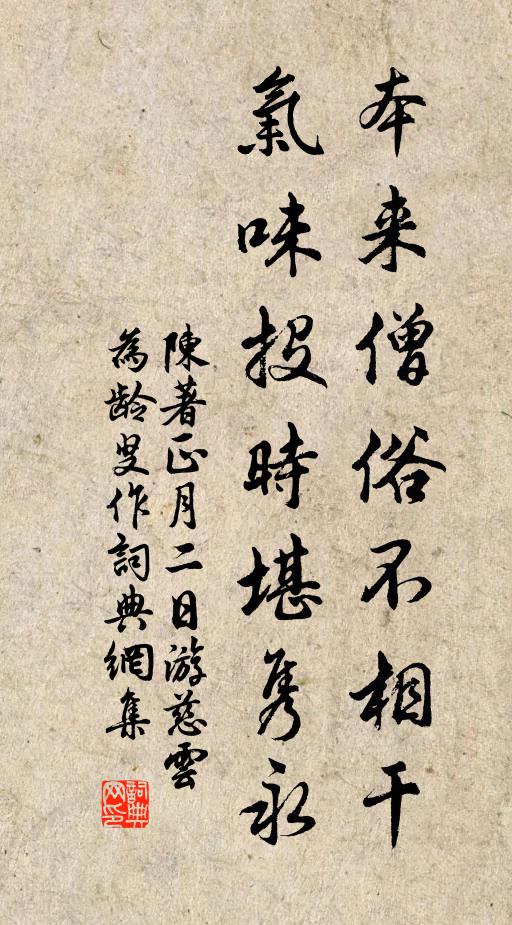 本来僧俗不相干
氣味投時堪隽永
陳著正月二日游慈雲
為龄叟作詞典網集
詞典网印